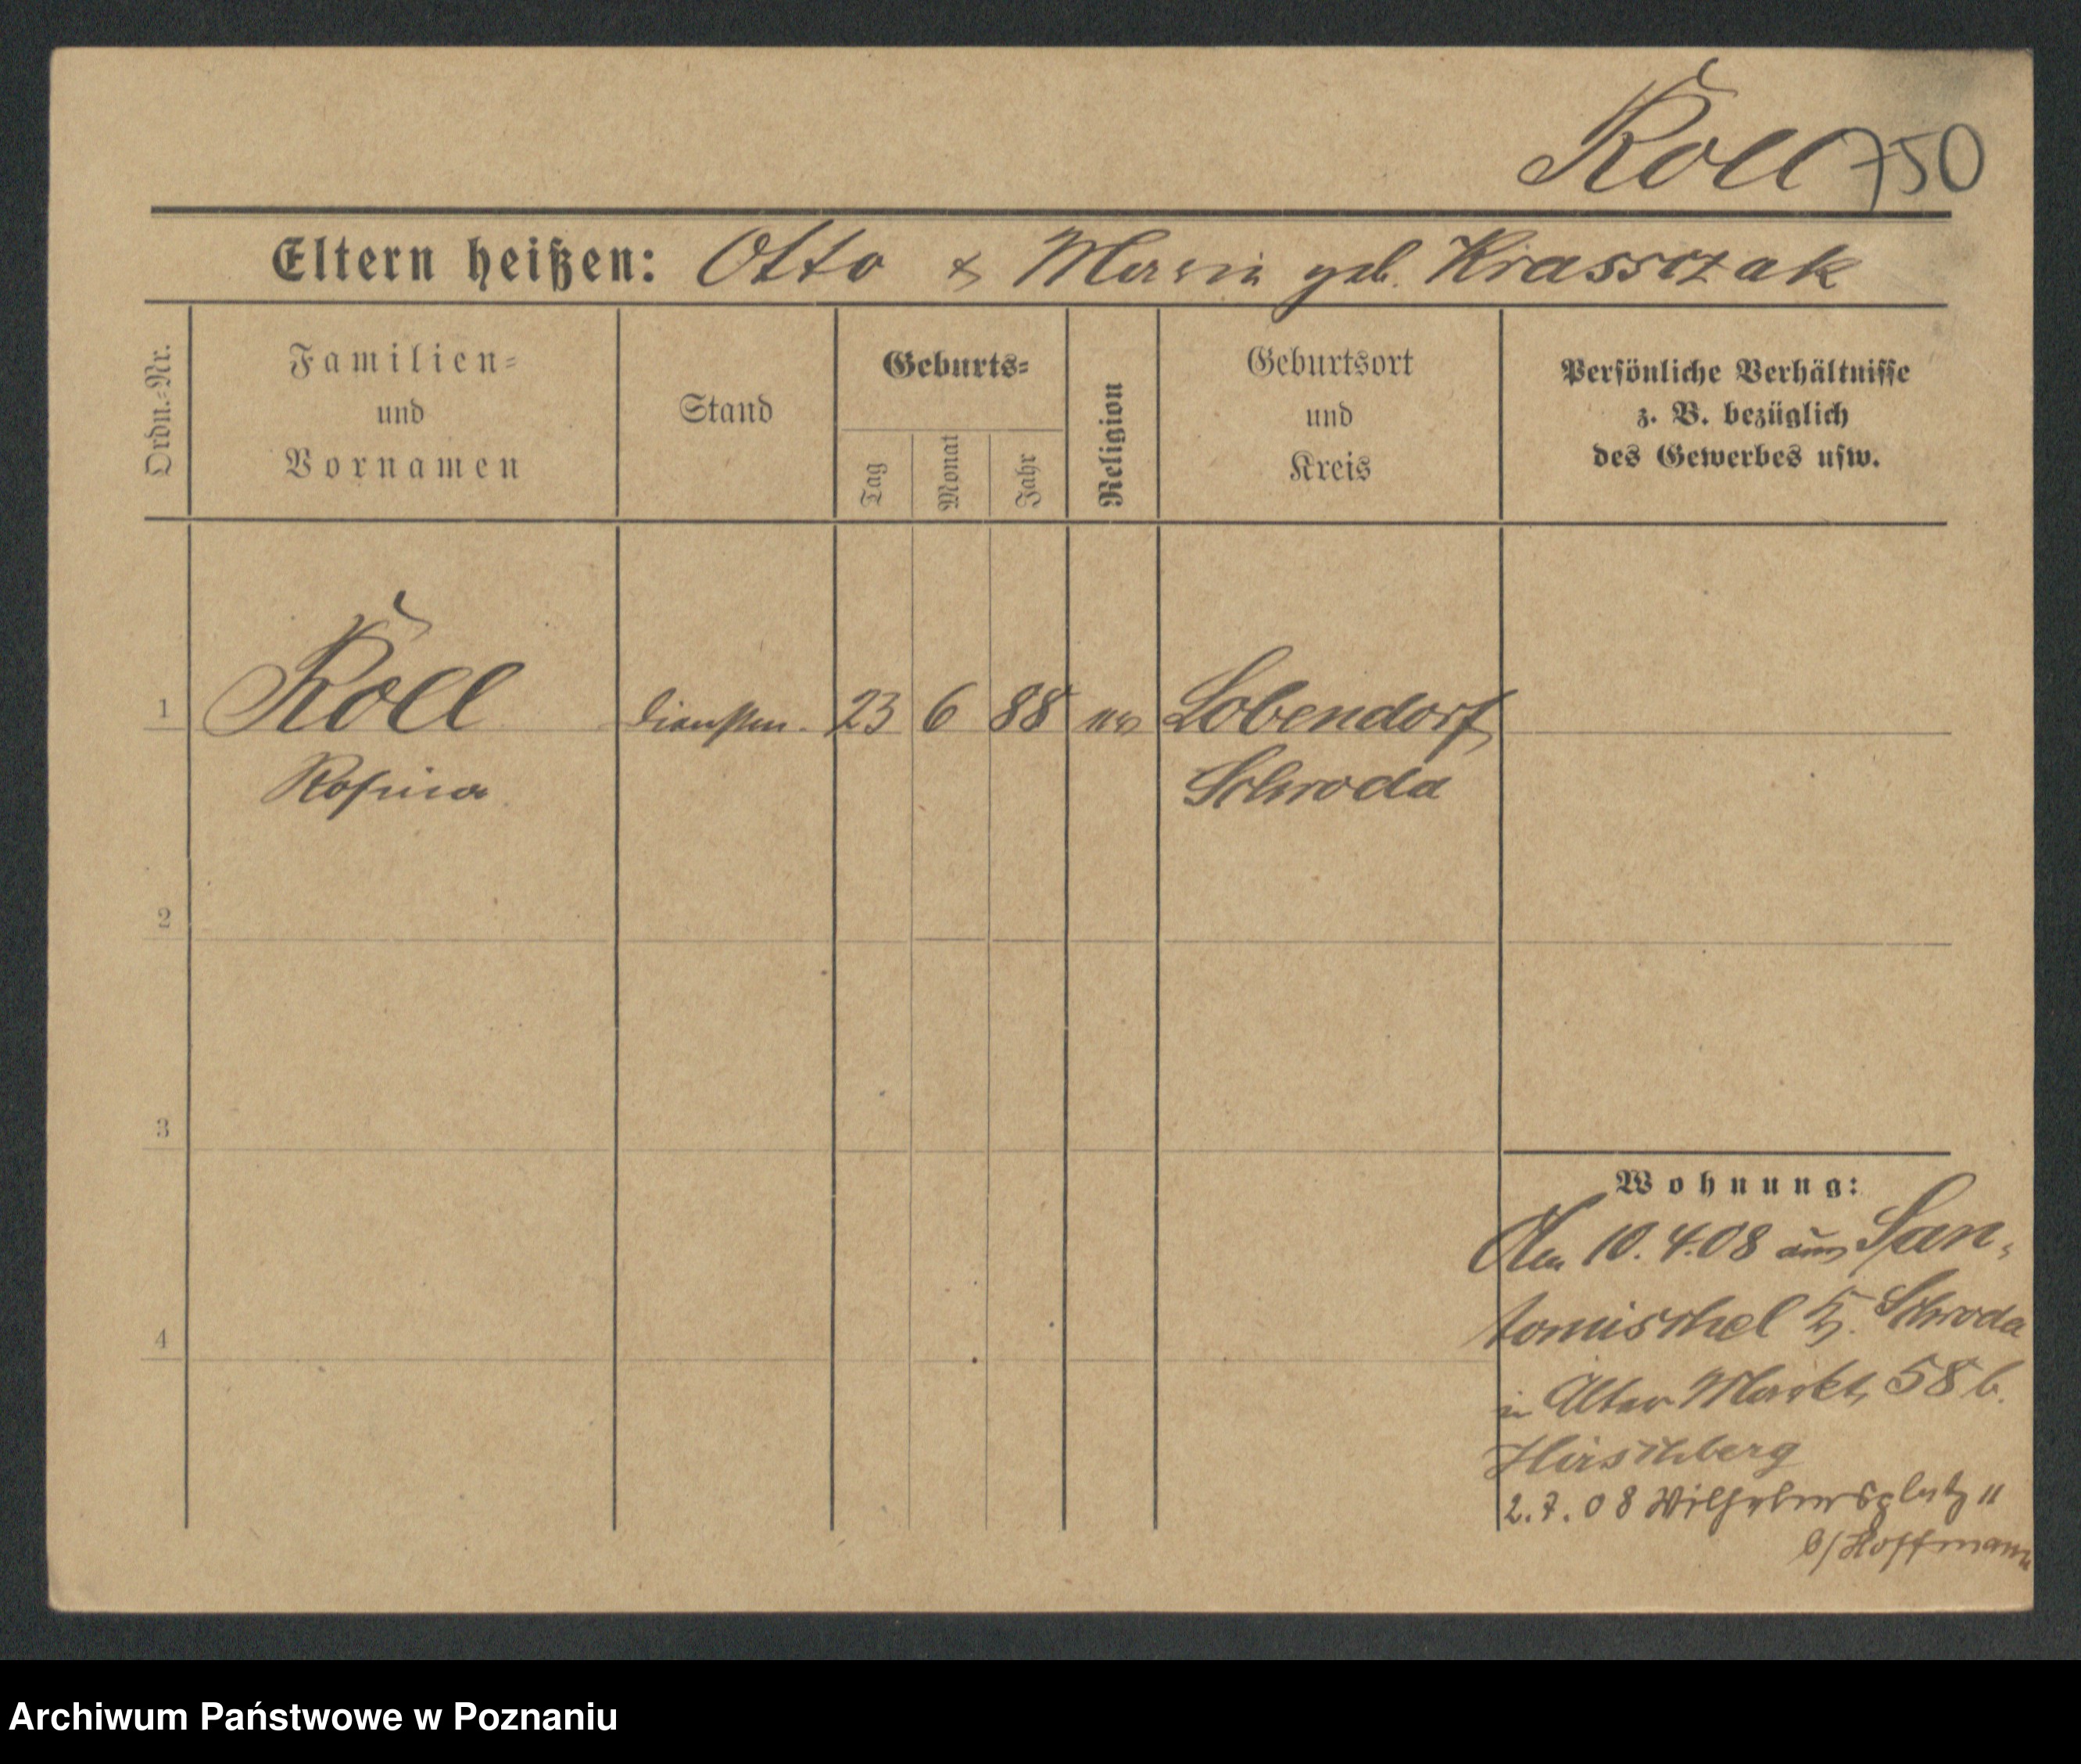 Roll 750
Eltern heißen: Otto & Maria geb. Krassczak
Ordn.-Nr.
Familien-
und
Vornamen
Stand
Geburts-
Tag
Monat
Jahr
Religion
Geburtsort
und
Kreis
Persönliche Verhältnisse
z. B. bezüglich
des Gewerbes usw.
1 Roll 23 6 88 Lobendorf
Rosina Schroda
2
3
4
Wohnung:
Am 10.4.08 aus San-
tomischel Schroda
in Alter Markt 58 b.
Hirschberg
2.7.08 Wilhelmsplatz 11
b/Hoffmann
Archiwum Państwowe w Poznaniu